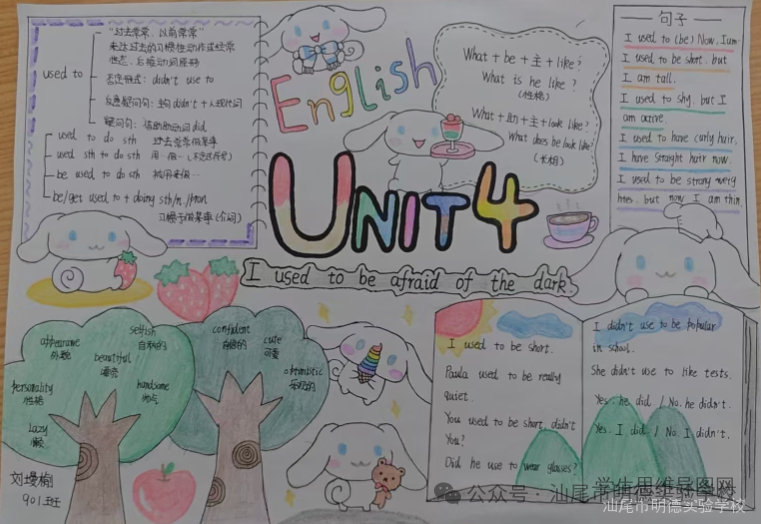 English
UNIT4
I used to be afraid of the dark.
used to
"过去常常，以前常常"
表达过去的习惯性动作或经常
性态，后接动词原形
否定形式：didn't use to
反意疑问句：主句 didn't + 人称代词
疑问句：借助助动词 did
used to do sth 过去常常做某事
used sth to do sth 用…做…
be used to do sth 被用来做…
be/get used to + doing sth/n./pron
习惯于做某事(介词)
What + be + 主 + like?
What is he like?
(性格)
What + 助 + 主 + look like?
What does he look like?
(长相)
句子
I used to (be) Now, I'am
I used to be short. but
I am tall.
I used to shy. but I
am active.
I used to have curly hair.
I have straight hair now.
I used to be strong
but now I am thin
appearance
外貌
selfish
自私的
beautiful
漂亮
personality
性格
handsome
帅气
Lazy
懒
confident
自信的
cute
可爱
optimistic
乐观的
901班
I used to be short.
Paula used to be really
quiet.
You used to be short, didn't
You?
Did he use to wear glasses?
I didn't use to be popular
in school.
She didn't use to like tests.
Yes, he did. / No, he didn't.
Yes, I did. / No, I didn't.
学生思维导图网
公众号·汕尾市明德实验学校
汕尾市明德实验学校